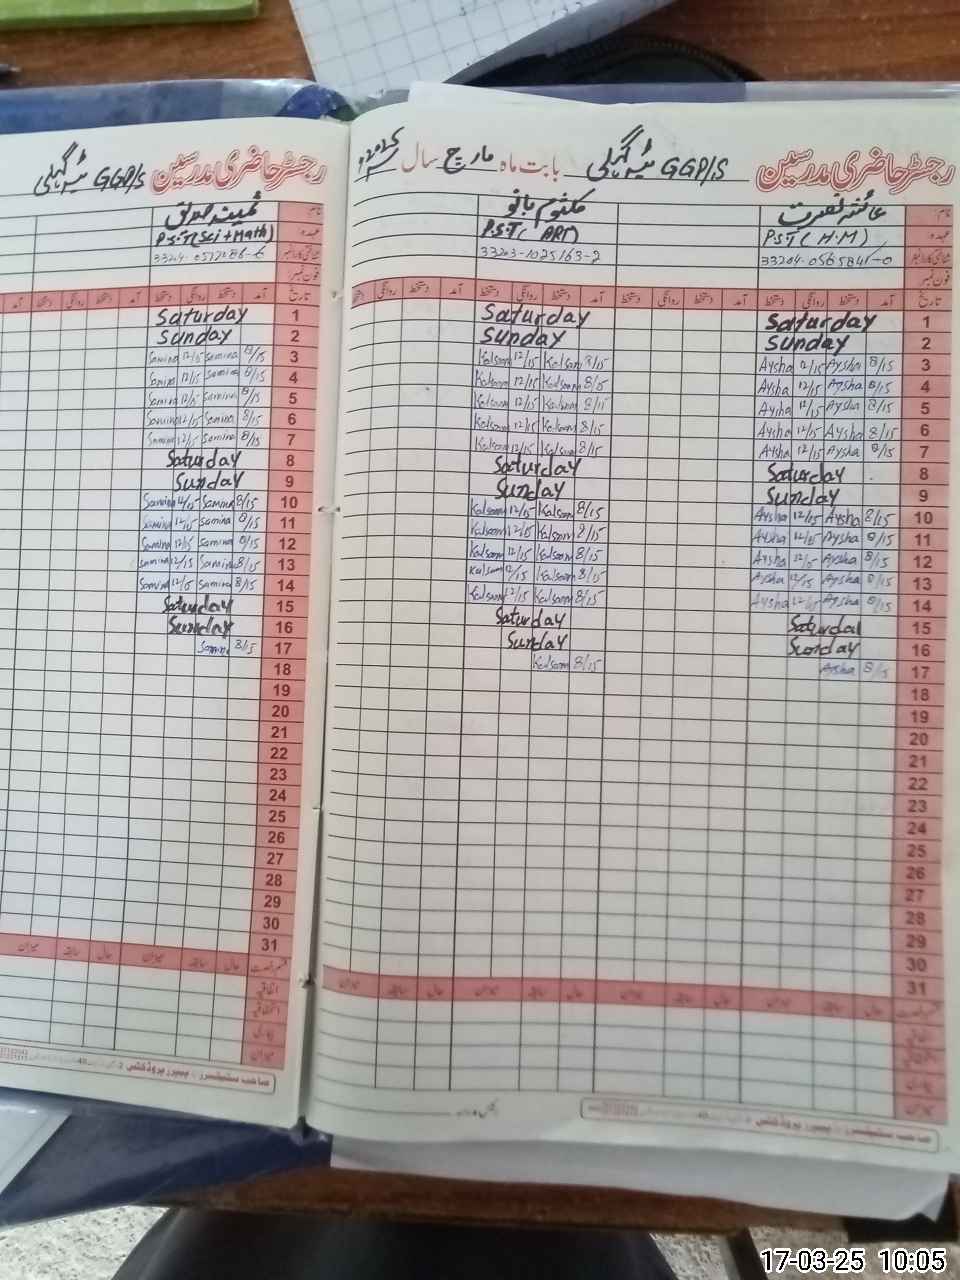 رجسٹر حاضری مدرسین GGP/S بابت ماہ مارچ سال 2025
نام: عائشہ نصرت کلثوم بانو
عہدہ P.S.T (H.M) P.S.T (ART)
33204-0565841-0 33203-1025163-2
فون نمبر:
تاریخ آمد دستخط روانگی دستخط آمد دستخط روانگی دستخط آمد دستخط روانگی دستخط آمد دستخط روانگی دستخط
1 Saturday Saturday
2 Sunday Sunday
3 8/15 Aysha 12/15 Aysha 8/15 Kalsoom 12/15 Kalsoom
4 8/15 Aysha 12/15 Aysha 8/15 Kalsoom 12/15 Kalsoom
5 8/15 Aysha 12/15 Aysha 8/15 Kalsoom 12/15 Kalsoom
6 8/15 Aysha 12/15 Aysha 8/15 Kalsoom 12/15 Kalsoom
7 8/15 Aysha 12/15 Aysha 8/15 Kalsoom 12/15 Kalsoom
8 Saturday Saturday
9 Sunday Sunday
10 8/15 Aysha 12/15 Aysha 8/15 Kalsoom 12/15 Kalsoom
11 8/15 Aysha 12/15 Aysha 8/15 Kalsoom 12/15 Kalsoom
12 8/15 Aysha 12/15 Aysha 8/15 Kalsoom 12/15 Kalsoom
13 8/15 Aysha 12/15 Aysha 8/15 Kalsoom 12/15 Kalsoom
14 8/15 Aysha 12/15 Aysha 8/15 Kalsoom 12/15 Kalsoom
15 Saturday Saturday
16 Sunday Sunday
17 8/15 Aysha 8/15 Kalsoom
18
19
20
21
22
23
24
25
26
27
28
29
30
31
حال سابقہ میزان حال سابقہ میزان حال سابقہ میزان حال سابقہ میزان
میزان
رجسٹر حاضری مدرسین GGP/S
نام: ثمینہ صدیق
عہدہ P.S.T (Sci + Math)
فون نمبر:
تاریخ آمد دستخط روانگی دستخط آمد دستخط روانگی دستخط آمد
1 Saturday
2 Sunday
3 8/15 Samina 12/15 Samina
4 8/15 Samina 12/15 Samina
5 8/15 Samina 12/15 Samina
6 8/15 Samina 12/15 Samina
7 8/15 Samina 12/15 Samina
8 Saturday
9 Sunday
10 8/15 Samina 12/15 Samina
11 8/15 Samina 12/15 Samina
12 8/15 Samina 12/15 Samina
13 8/15 Samina 12/15 Samina
14 8/15 Samina 12/15 Samina
15 Saturday
16 Sunday
17 8/15 Samina
18
19
20
21
22
23
24
25
26
27
28
29
30
31
حال سابقہ میزان حال سابقہ میزان
اتفاقیہ
میزان
17-03-25 10:05